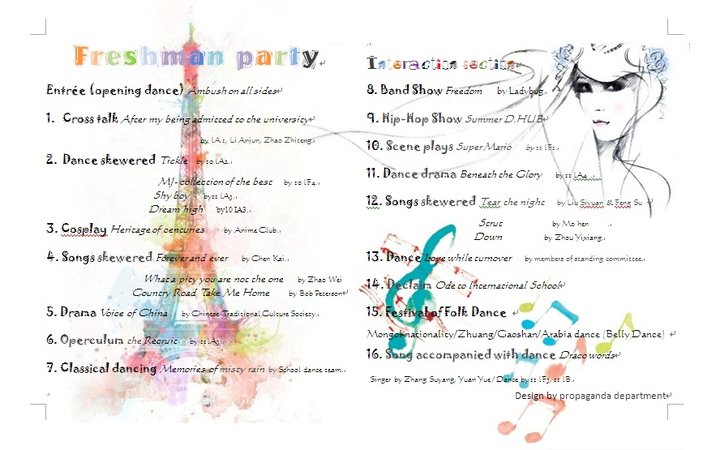 Freshman party
Entrée (opening dance) Ambush on all sides
1. Cross talk After my being admitted to the university
by Li Anjun, Zhao Zhiteng
2. Dance skewered Tickle by
MJ- collection of the best by
Shy boy by
Dream high by10 IA3
3. Cosplay Heritage of centuries by Anime Club
4. Songs skewered Forever and ever by Chen Kai
What a pity you are not the one by Zhao Wei
Country Road, Take Me Home by Bob Peterson
5. Drama Voice of China by Chinese Traditional Culture Society
6. Operculum the Recruit by
7. Classical dancing Memories of misty rain by School dance team
Interaction section
8. Band Show Freedom by Ladybug
9. Hip-Hop Show Summer D.HUB
10. Scene plays Super Mario by
11. Dance drama Beneath the Glory by
12. Songs skewered Tear the night by Liu Siyuan & Feng Su
Strut by Mo hen
Down by Zhou Yixiang
13. Dance boys while turnover by members of standing committee
14. Declaim Ode to International School
15. Festival of Folk Dance
Mongolnationality/Zhuang/Gaoshan/Arabia dance (Belly Dance)
16. Song accompanied with dance Draco words
Singer by Zhang Suyang, Yuan Yue/ Dance by
Design by propaganda department